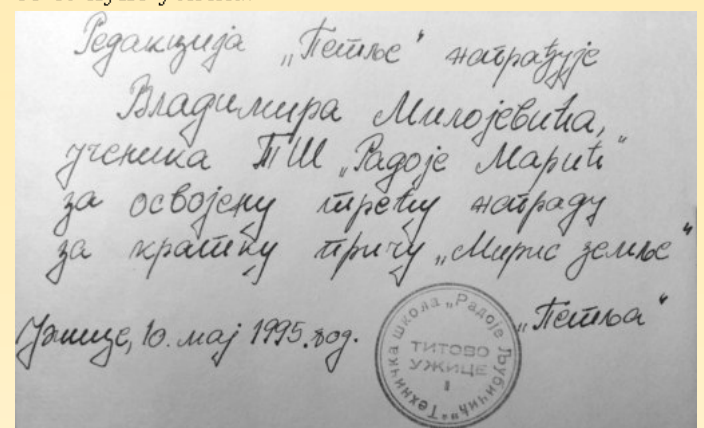 Редакција „Петље“ награђује
Владимира Милојевића,
ученика ТШ „Радоје Марић“
за освојену трећу награду
за кратку причу „Мирис земље“
„Петља“
Ужице, 10. мај 1995. год.
Техничка школа „Радоје Љубичић“
ТИТОВО
УЖИЦЕ
1